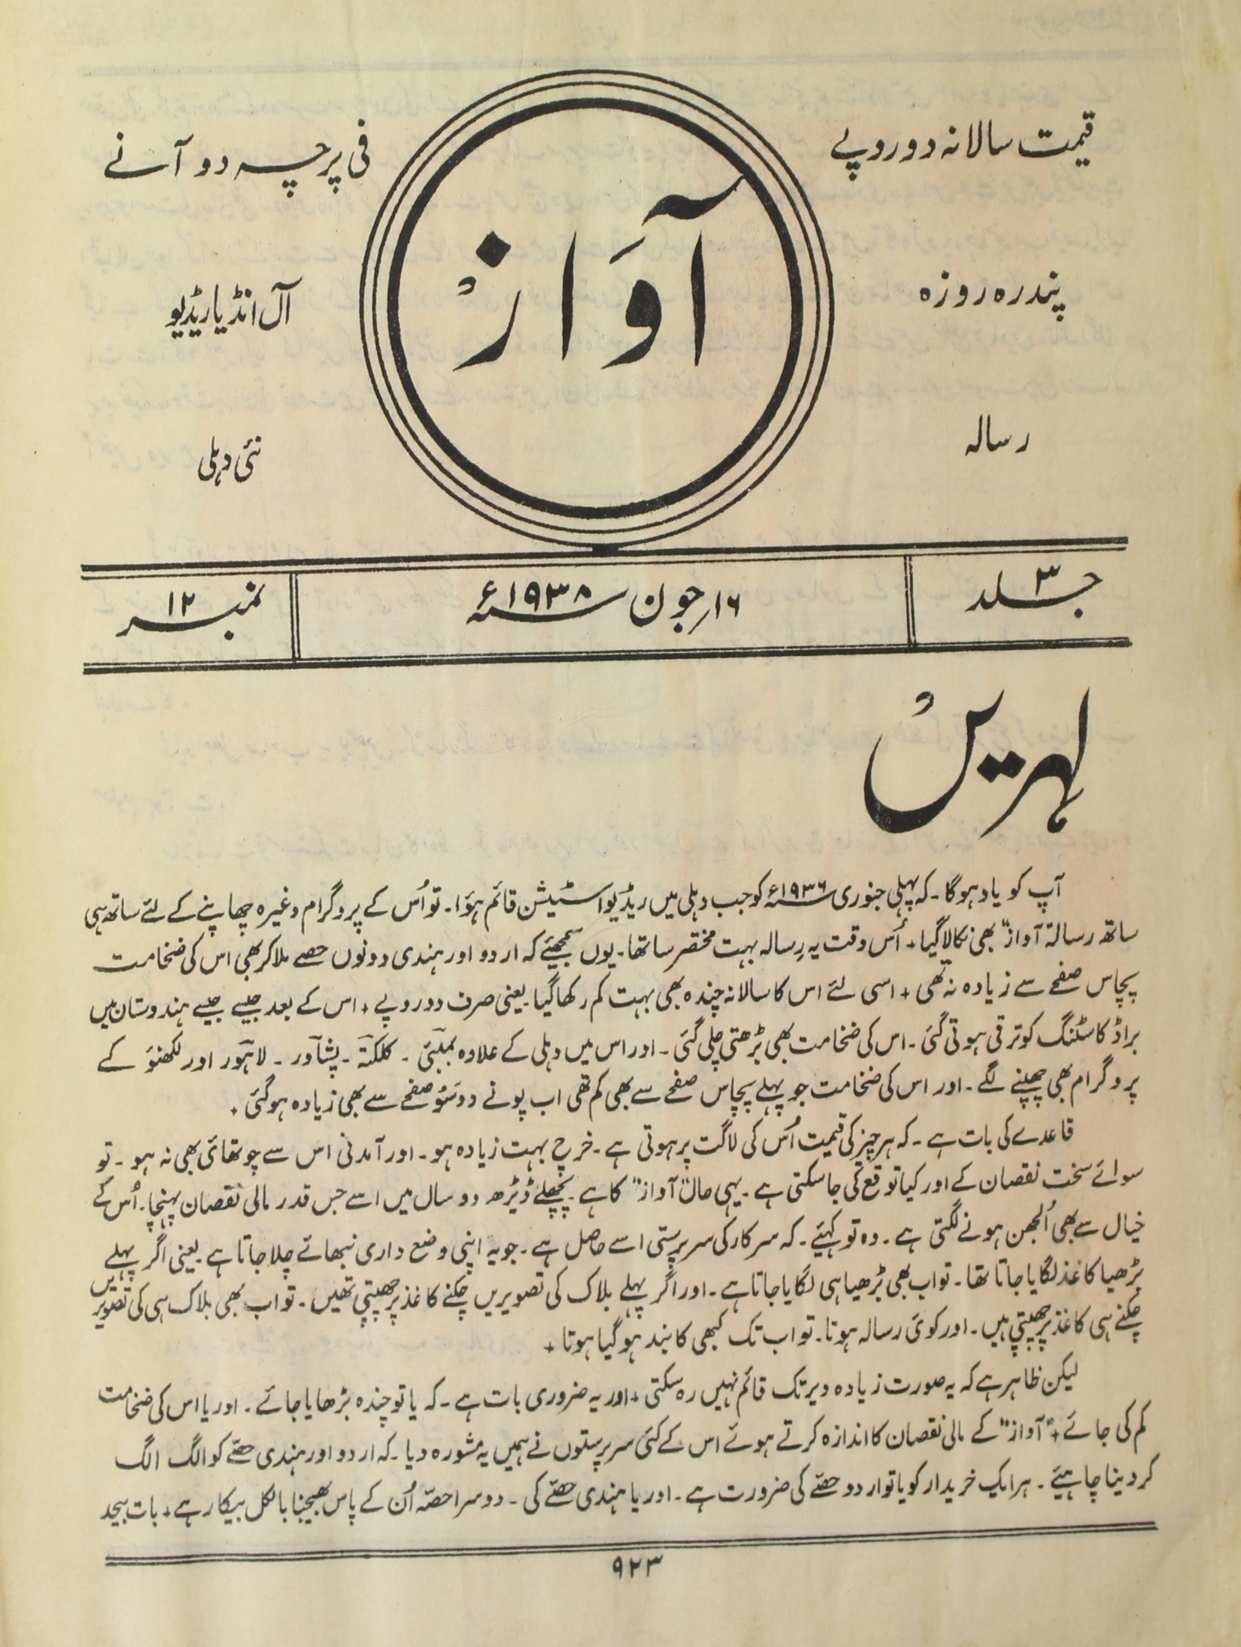 قیمت سالانہ دو روپے
فی پرچہ دو آنے
آواز
پندرہ روزہ
آل انڈیا ریڈیو
رسالہ
نئی دہلی
جلد ۳
۱۶ جون ۱۹۳۸ء
نمبر ۱۲
لہریں
آپ کو یاد ہوگا۔ کہ پہلی جنوری ۱۹۳۶ء کو جب دہلی میں ریڈیو اسٹیشن قائم ہؤا۔ تو اُس کے پروگرام وغیرہ چھاپنے کے لئے ساتھ ہی
ساتھ رسالہ "آواز" بھی نکالا گیا+ اُس وقت یہ رسالہ بہت مختصر سا تھا۔ یوں سمجھیئے کہ اردو اور ہندی دونوں حصے ملا کر بھی اس کی ضخامت
پچاس صفحے سے زیادہ نہ تھی + اسی لئے اس کا سالانہ چندہ بھی بہت کم رکھا گیا۔ یعنی صرف دو روپے + اس کے بعد جیسے جیسے ہندوستان میں
براڈکاسٹنگ کو ترقی ہوتی گئی۔ اس کی ضخامت بھی بڑھتی چلی گئی۔ اور اس میں دہلی کے علاوہ بمبئی ۔ کلکتہ ۔ پشاور ۔ لاہور اور لکھنؤ کے
پروگرام بھی چھپنے لگے۔ اور اس کی ضخامت جو پہلے پچاس صفحے سے بھی کم تھی اب پونے دو سَو صفحے سے بھی زیادہ ہوگئی +
قاعدے کی بات ہے۔ کہ ہر چیز کی قیمت اُس کی لاگت پر ہوتی ہے۔ خرچ بہت زیادہ ہو۔ اور آمدنی اس سے چوتھائی بھی نہ ہو۔ تو
سوائے سخت نقصان کے اور کیا توقع کی جاسکتی ہے۔ یہی حال "آواز" کا ہے۔ پچھلے ڈیڑھ دو سال میں اسے جس قدر مالی نقصان پہنچا۔ اُس کے
خیال سے بھی اُلجھن ہونے لگتی ہے۔ وہ تو کہیئے۔ کہ سرکار کی سرپرستی اسے حاصل ہے۔ جو یہ اپنی وضع داری نبھائے چلا جاتا ہے۔ یعنی اگر پہلے
بڑھیا کاغذ لگایا جاتا تھا۔ تو اب بھی بڑھیا ہی لگایا جاتا ہے۔ اور اگر پہلے بلاک کی تصویریں چکنے کاغذ پر چھپتی تھیں۔ تو اب بھی بلاک ہی کی تصویریں
چکنے ہی کاغذ پر چھپتی ہیں۔ اور کوئی رسالہ ہوتا۔ تو اب تک کبھی کا بند ہوگیا ہوتا +
لیکن ظاہر ہے کہ یہ صورت زیادہ دیر تک قائم نہیں رہ سکتی + اور یہ ضروری بات ہے۔ کہ یا تو چندہ بڑھایا جائے۔ اور یا اس کی ضخامت
کم کی جائے + "آواز" کے مالی نقصان کا اندازہ کرتے ہوئے اس کے کئی سرپرستوں نے ہمیں یہ مشورہ دیا۔ کہ اردو اور ہندی حصّے کو الگ الگ
کر دینا چاہیئے۔ ہر ایک خریدار کو یا تو اردو حصّے کی ضرورت ہے۔ اور یا ہندی حصّے کی۔ دوسرا حصّہ اُن کے پاس بھیجنا بالکل بیکار ہے+ بات بیحد
۹۲۳